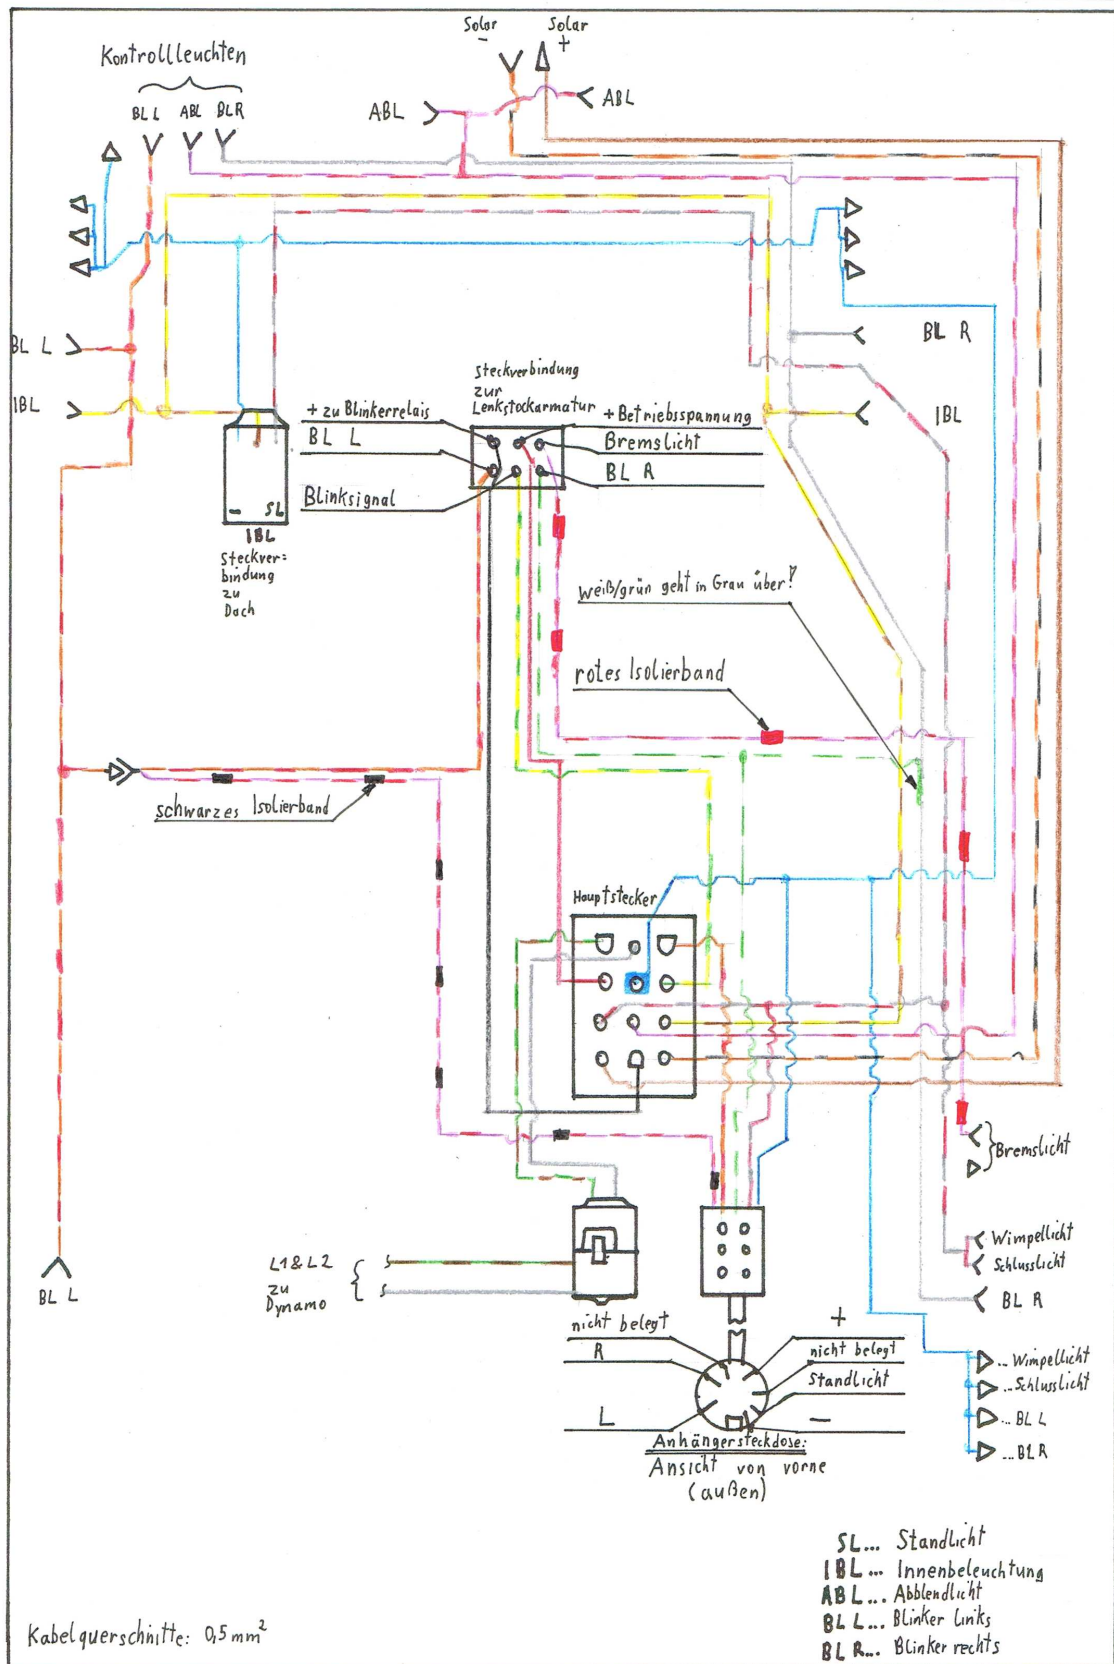 Solar
-
Solar
+
Kontrollleuchten
BL L
ABL
BLR
ABL
ABL
BL L
BL R
IBL
IBL
Steckverbindung
zur
Lenkstockarmatur
+ zu Blinkerrelais
BL L
Blinksignal
+ Betriebsspannung
Bremslicht
BL R
-
SL
IBL
Steckver=
bindung
zu
Dach
weiß/grün geht in Grau über?
rotes Isolierband
schwarzes Isolierband
Hauptstecker
Bremslicht
Wimpellicht
Schlusslicht
BL R
BL L
L1&L2
zu
Dynamo
nicht belegt
R
L
+
nicht belegt
Standlicht
-
Anhängersteckdose:
Ansicht von vorne
(außen)
... Wimpellicht
... Schlusslicht
... BL L
... BLR
SL... Standlicht
IBL... Innenbeleuchtung
ABL... Abblendlicht
BL L... Blinker links
BL R... Blinker rechts
Kabelquerschnitte: 0,5 mm²